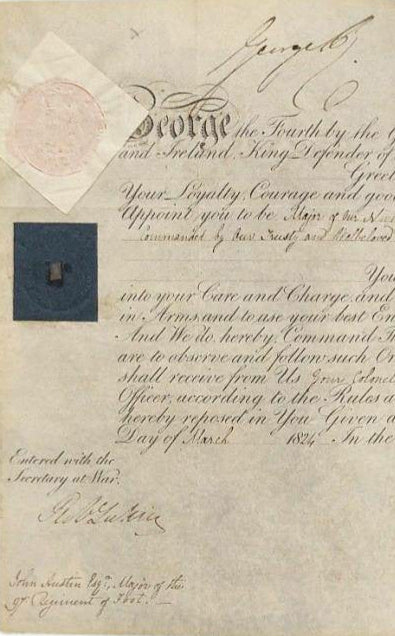 George R
George the Fourth by the G
and Ireland, King, Defender of
Greet
Your Loyalty, Courage and goo
Appoint you to be Major of Our
Commanded by Our Trusty and Welbeloved
You
into your Care and Charge, and
in Arms, and to use your best En
And We do, hereby, Command T
are to observe and follow such Or
shall receive from Us Your Colonel
Officer, according to the Rules a
hereby reposed in You Given a
Day of March 1824 In the
Entered with the
Secretary at War.
John Austen Esqr. Major of the
97 Regiment of Foot.